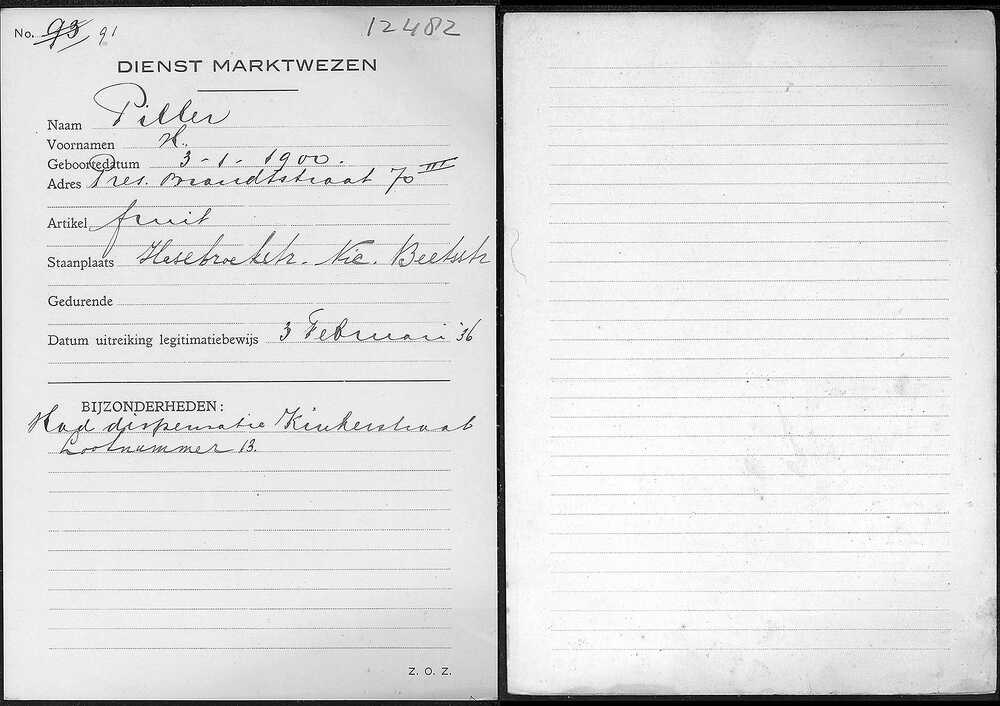 No. 93 91
12482
DIENST MARKTWEZEN
Naam Piller
Voornamen H.
Geboortedatum 3-1-1900.
Adres Pres. Brandtstraat 70 III
Artikel fruit
Staanplaats Hasebroekstr. Nic. Beetsstr
Gedurende
Datum uitreiking legitimatiebewijs 3 Februari '36
BIJZONDERHEDEN:
Had dispensatie Kinkerstraat
Lootnummer 13.
Z. O. Z.